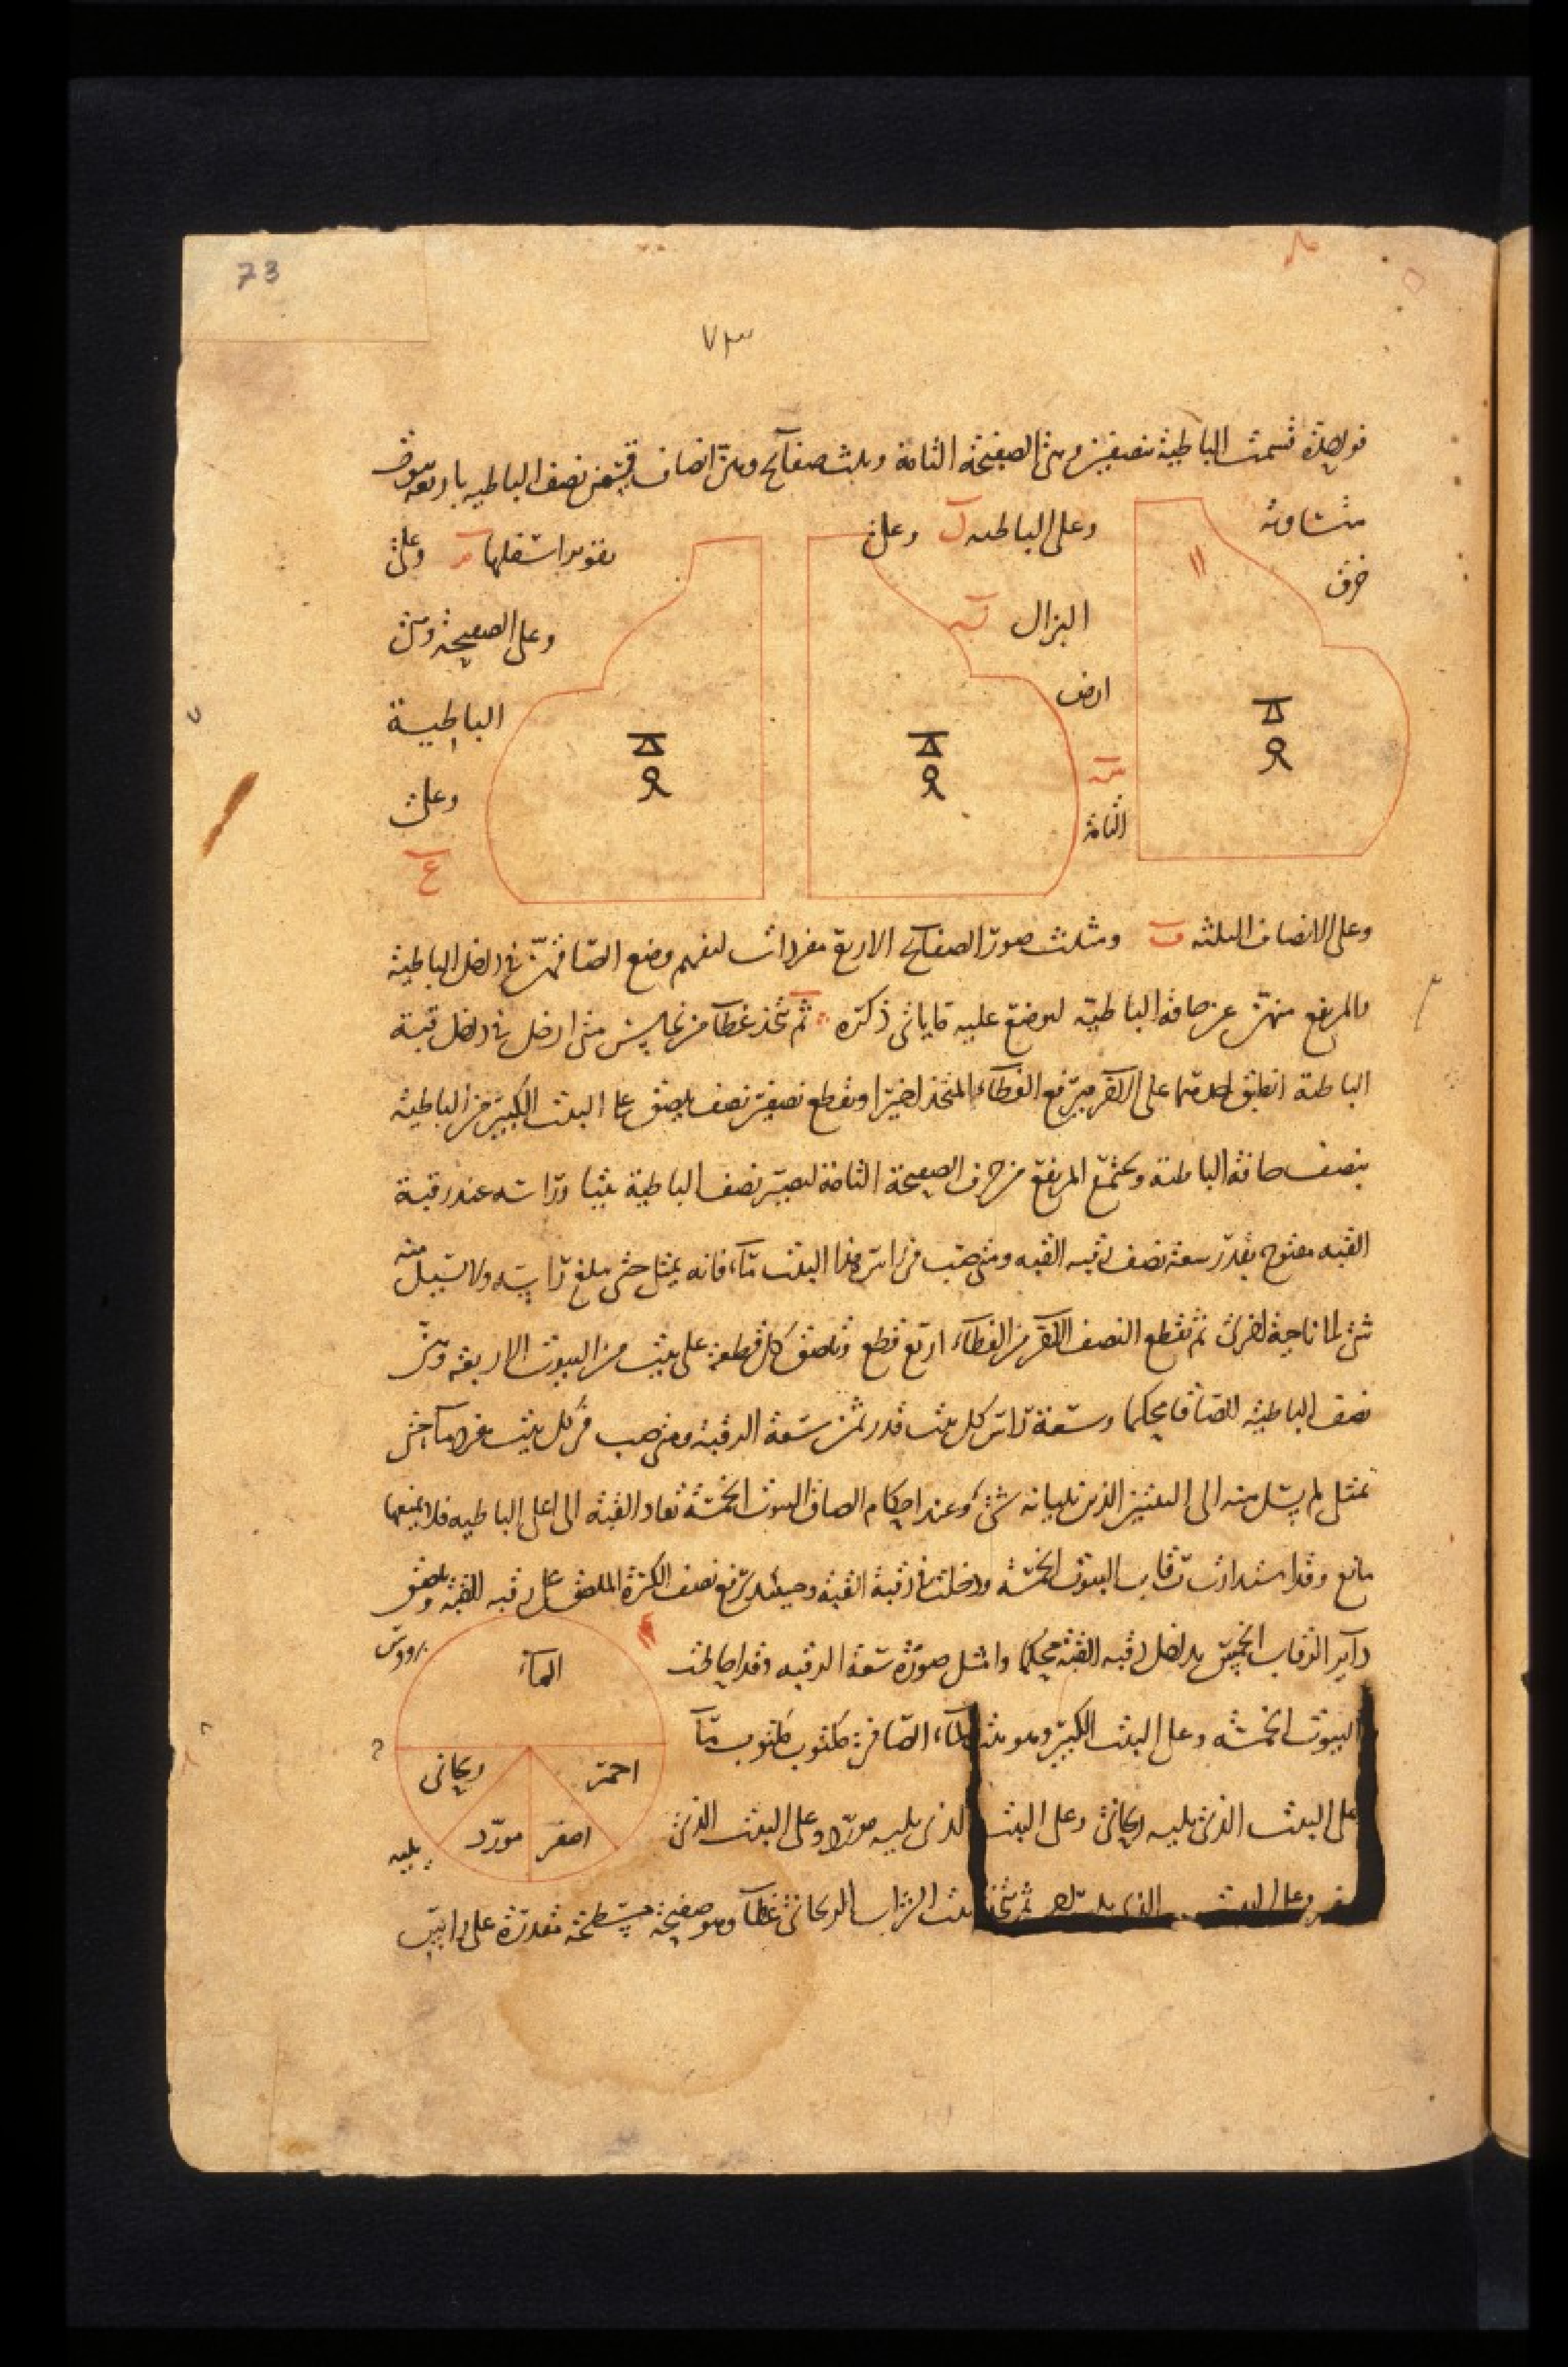 73
٧٣
فواحدة قسمت الباطية بنصفين وهي الصفيحة التامة وثلث صفائح وهي انصاف قسمن نصف الباطيه باربعه بيوت
متساوية
وعلى الباطيه ل وعلى
بقوير اسفلها م وعلى
خرق
البزال نه
وعلى الصفيحة وسى
ارض
الباطية
سه
التامة
وعلى
ع
وعلى الانصاف الثلثه ف ومثلت صور الصفائح الاربع مفردات ليفهم وضع الصاقهن في داخل الباطية
والمرتفع منهن عن حافة الباطية ليوضع عليه ما ياتي ذكره ثم تتخذ غطاء من نحاس متى ادخل في داخل قبة
الباطية انطبق احدهما على الاخر ثم يرفع الغطاء المتخذ اخيرا ويقطع نصفين نصف يلصق على البيت الكبير من الباطية
بنصف حافة الباطية وبجميع المرتفع من حرف الصفيحة التامة ليصير نصف الباطية بيتا وراسه عند رقبة
القبه مفتوح بقدر سعة نصف رقبه القبه ومتى صب في راس هذا البيت ماء فانه يمتلى حتى يبلغ راسه ولا يسيل منه
شئ الى ناحية اخرى ثم يقطع النصف الاخر من الغطاء اربع قطع وتلصق كل قطعة على بيت من البيوت الاربعة وهي
نصف الباطية الصاقا محكما وسعة راس كل بيت قدر ثمن سعة الرقبة ومتى صب في كل بيت مفرد ماء حتى
يمتلى لم يسل منه الى البيتين الذين يليانه شئ وعند احكام الصاق البيوت الخمسة تعاد القبة الى اعلى الباطيه فلا يمنعها
مانع وقد استدارت رقاب البيوت الخمسة ودخلت في رقبة القبه وحينئذ يرفع نصف الكرة الملصق على رقبه القبة ويلصق
داير الرقاب الخمس بداخل رقبه القبة محكما وامثل صورة سعة الرقبه وقد احاطت
بروؤس
الماء
البيوت الخمسة وعلى البيت الكبير وهو بيت الماء الصافي مكتوب ماء
ريحاني
احمر
على البيت الذي يليه ريحاني وعلى البيت الذي يليه مورد وعلى البيت الذي
مورد
اصفر
يليه
اصفر وعلى البيت الذي يليه احمر ثم تتخذ لبيت الشراب الريحاني غطاء وهو صفيحة مسطحة مقدرة على راس